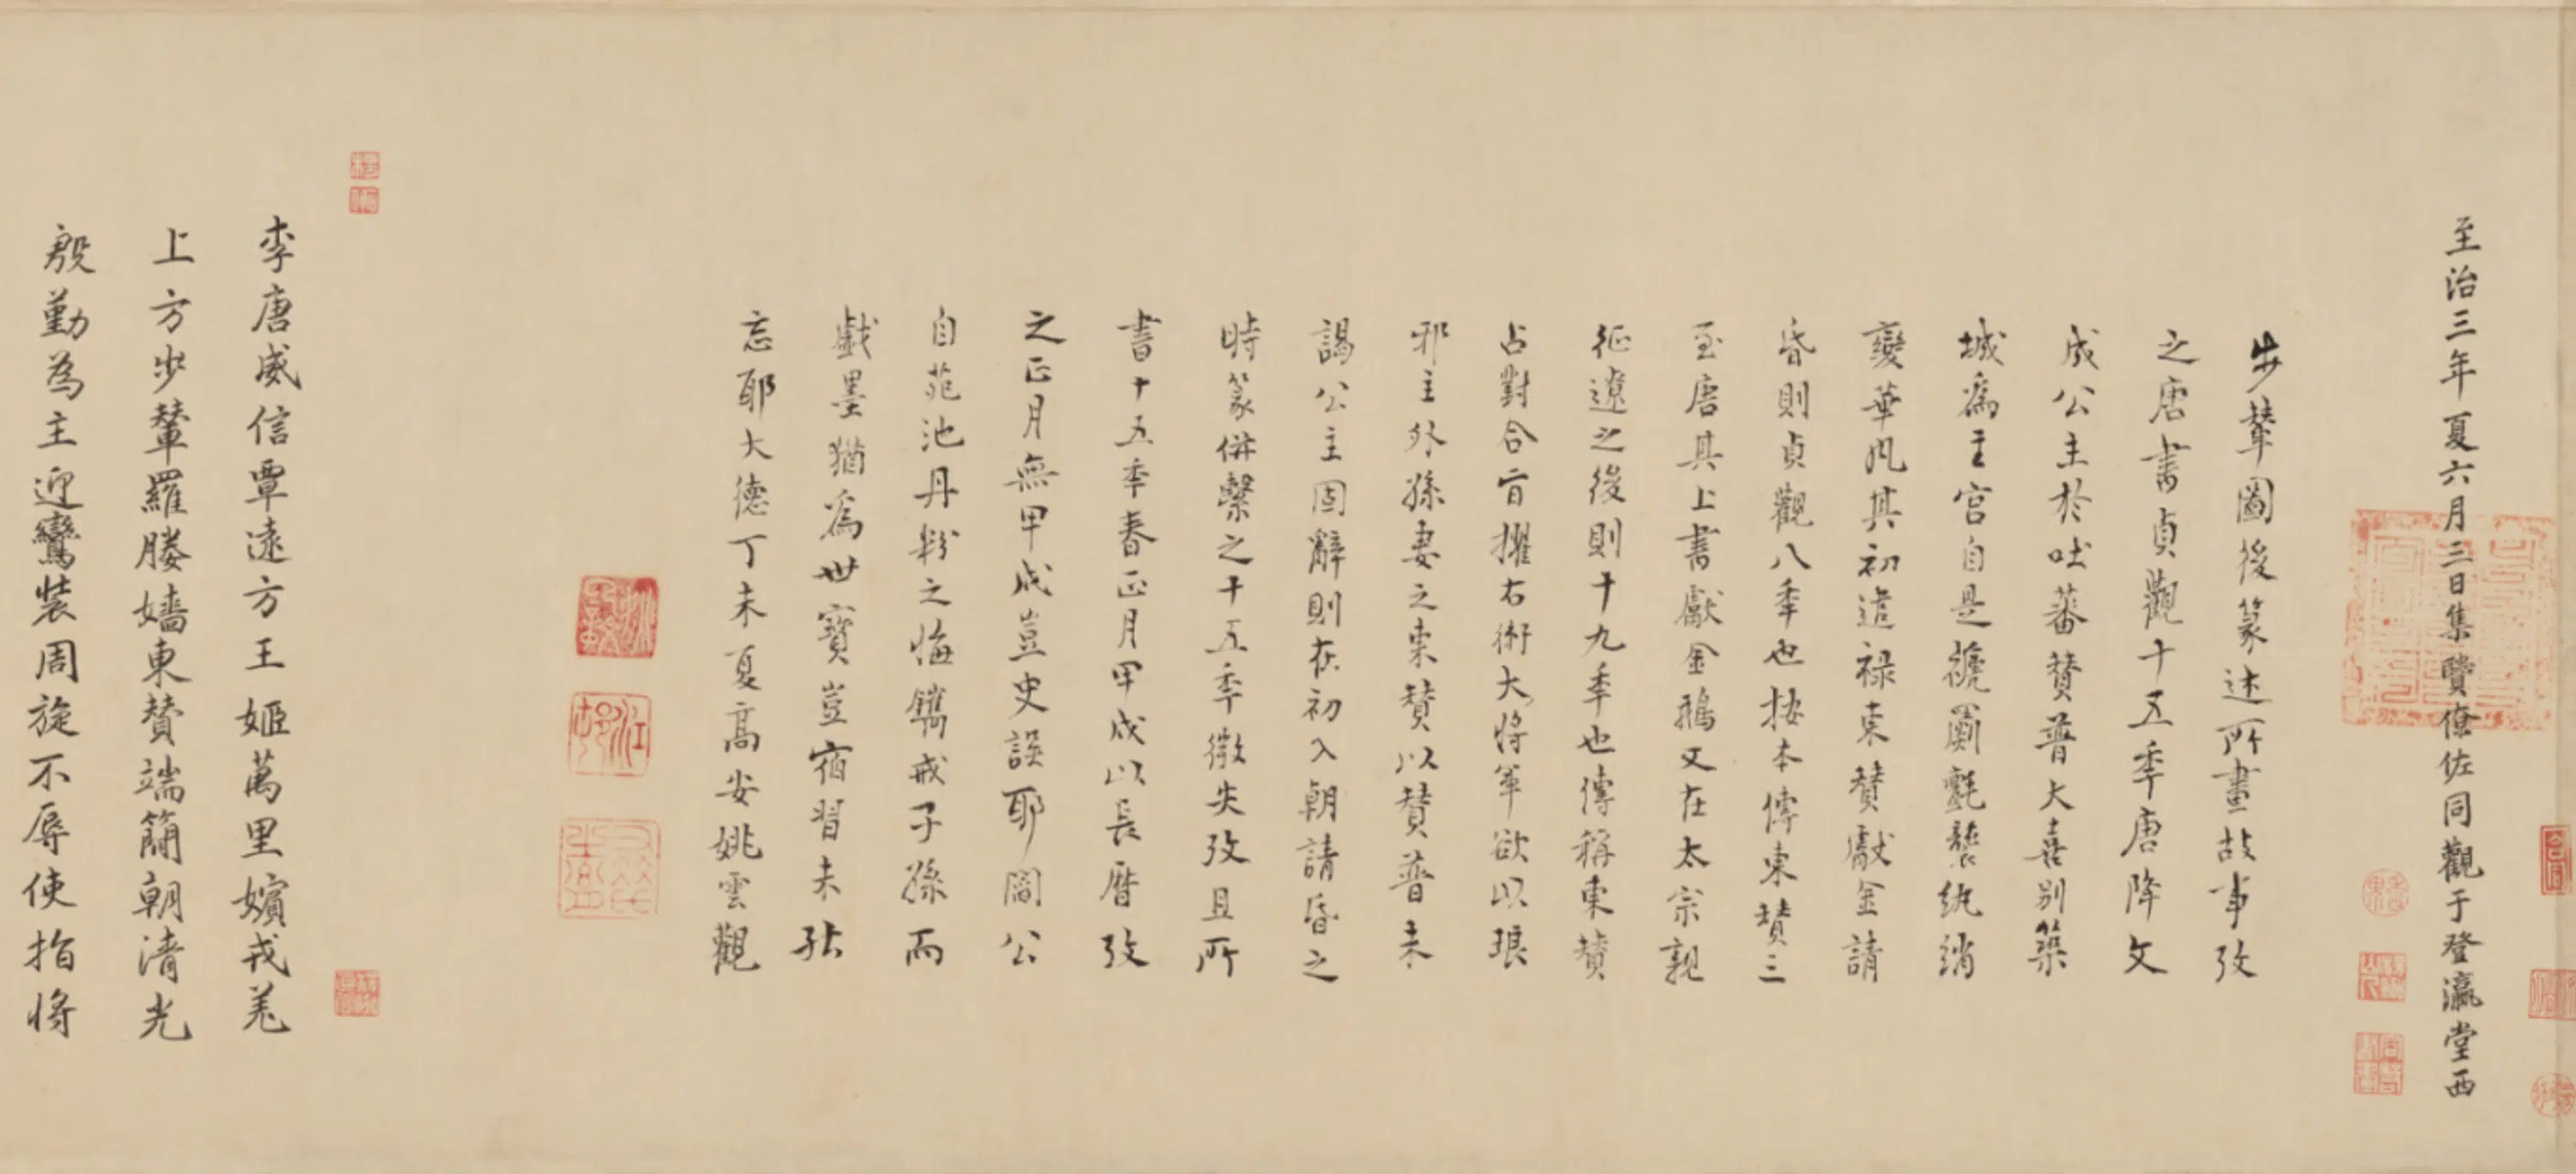 至治三年夏六月三日集賢僚佐同觀于登瀛堂西
步輦圖後篆述所畫故事攷
之唐書貞觀十五季唐降文
成公主於吐蕃贊普大喜别築
城為主宮自是褫罽氎襲紈綃
變華風其初遣禄東贊獻金請
昏則貞觀八季也按本傳東贊三
至唐其上書獻金鵝又在太宗親
征遼之後則十九季也傳稱東贊
占對合旨擢右衛大將軍欲以琅
邪主外孫妻之東贊以贊普未
謁公主固辭則在初入朝請昏之
時篆併繫之十五季徽失攷且所
書十五季春正月甲戌以長曆攷
之正月無甲戌豈史誤耶閻公
自苑池丹粉之悔鐫戒子孫而
戲墨猶為世寶豈宿習未
忘耶大德丁未夏高安姚雲觀
李唐威信覃遠方王姬萬里嬪戎羌
上方步輦羅媵嬙東贊端簡朝清光
殷勤為主迎鸞裝周旋不辱使指將